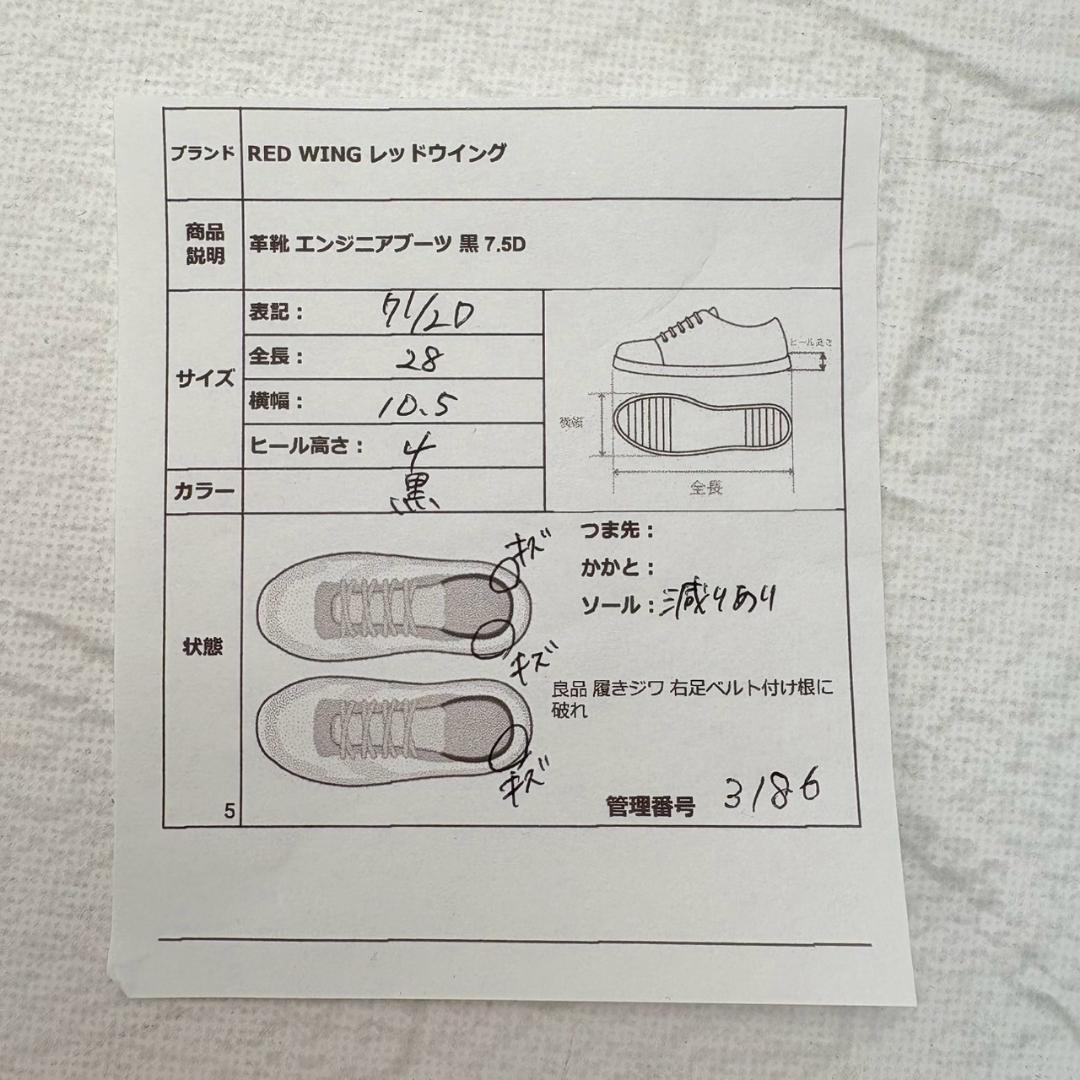 ブランド RED WING レッドウイング
商品
説明
革靴 エンジニアブーツ 黒 7.5D
サイズ
表記: 7 1/2D
全長: 28
横幅: 10.5
ヒール高さ: 4
ヒール高さ
横幅
全長
カラー 黒
状態
キズ
キズ
キズ
つま先:
かかと:
ソール: 減りあり
良品 履きジワ 右足ベルト付け根に
破れ
5
管理番号 3186